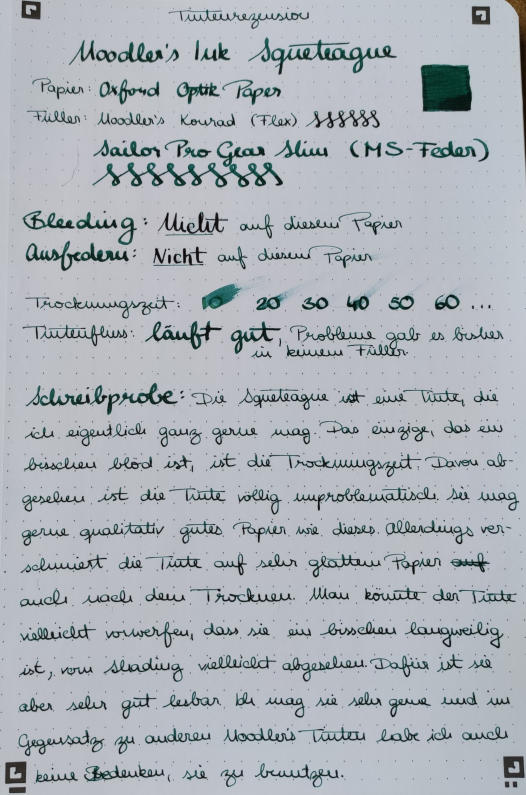 Tintenrezension
Noodler's Ink Squeteague
Papier: Oxford Optik Paper
Füller: Noodler's Konrad (Flex)
Sailor Pro Gear Slim (MS-Feder)
Bleeding: Nicht auf diesem Papier
Ausfedern: Nicht auf diesem Papier
Trocknungszeit: 0 20 30 40 50 60 ...
Tintenfluss: läuft gut, Probleme gab es bisher
in keinem Füller
Schreibprobe: Die Squeteague ist eine Tinte, die
ich eigentlich ganz gerne mag. Das einzige, das ein
bisschen blöd ist, ist die Trocknungszeit. Davon ab-
gesehen ist die Tinte völlig unproblematisch. Sie mag
gerne qualitativ gutes Papier wie dieses. Allerdings ver-
schmiert die Tinte auf sehr glattem Papier auf
auch nach dem Trocknen. Man könnte der Tinte
vielleicht vorwerfen, dass sie ein bisschen langweilig
ist, vom Shading vielleicht abgesehen. Dafür ist sie
aber sehr gut lesbar. Ich mag sie sehr gerne und im
Gegensatz zu anderen Noodler's Tinten habe ich auch
keine Bedenken, sie zu benutzen.